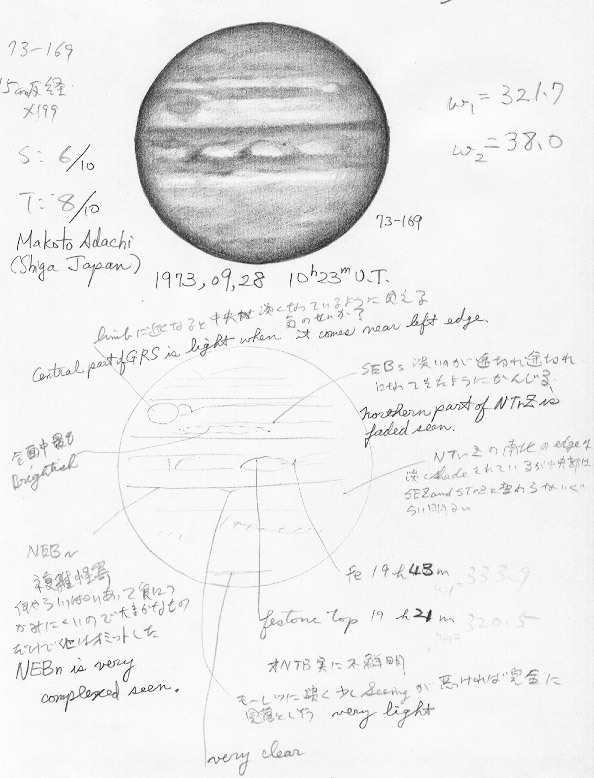 73-169
15cm反経
×199
S: 6/10
T: 8/10
Makoto Adachi
(Shiga Japan)
ω1 = 321.7
ω2 = 38.0
73-169
1973, 09, 28 10h23m U.T.
limbに近くなると中央は淡くなっているように見える
気のせいか?
Central part of GRS is light when it comes near left edge.
SEBs 淡いのが途切れ途切れ
になってきたようにかんじる
northern part of NTrZ is
faded seen.
全面中最も
Brightish
NTrZの南北のedgeは
淡くshadeされているが中央部は
SEZ and STrZと変わらないぐ
らい明るい
NEBn
複雑怪奇
NEBn is very
complexed seen.
fe 19h43m
ω1=333.9
festone top 19h21m
320.5
NTB実に不鮮明
淡く少しSeeingが悪ければ完全に
very light
very clear